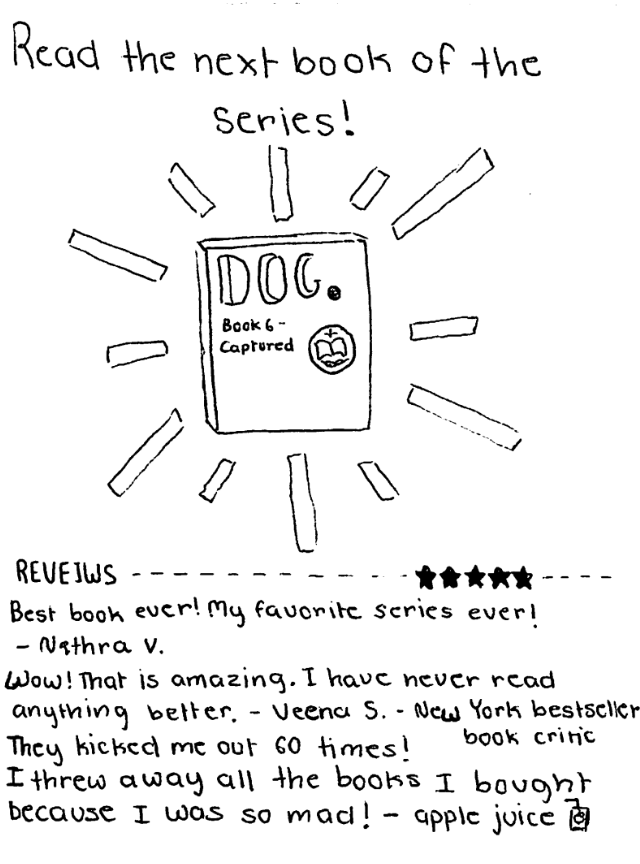 Read the next book of the
series!
DOG.
Book 6 -
Captured
REVEIWS
Best book ever! My favorite series ever!
- Nethra V.
Wow! That is amazing. I have never read
anything better. - Veena S. - New York bestseller
book critic
They kicked me out 60 times!
I threw away all the books I bought
because I was so mad! - apple juice